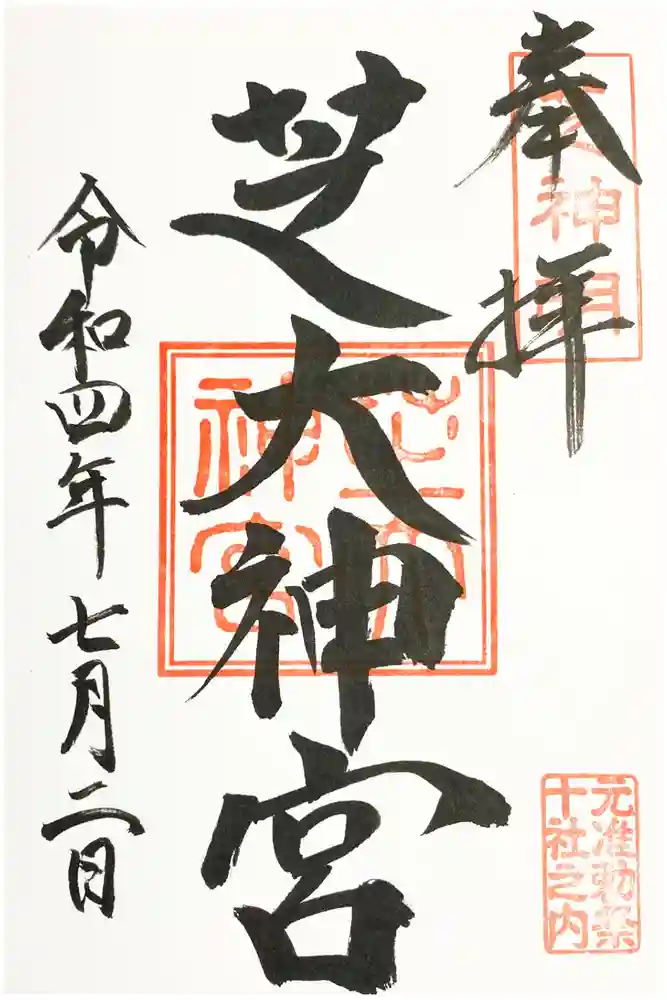 奉拝
芝神明
芝大神宮
芝大神宮
令和四年七月二日
元准勅祭
十社之内